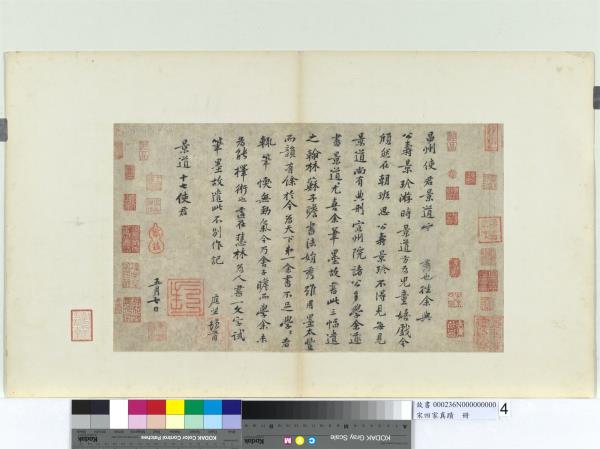 昌州使君景道宗秀也往余與
公壽景珍游時景道方為兒童嬉戲今
頎然在朝班思公壽景珍不得見每見
景道尚有典刑宣州院諸公多學余
書景道尤喜余筆墨故書此三幅遺
之翰林蘇子瞻書法娟秀雖用墨太豐
而韻有餘於今為天下第一余書不足學學者
輒筆愞無勁氣今乃舍子瞻而學余未
為能擇術也適在慧林為人書一文字試
筆墨故遣此不別作記 庭堅頓首
景道十七使君
五月七日
故書 000236N000000000
宋四家真蹟 冊
4
KODAK Color Control Patches
Kodak
KODAK Gray Scale
C Y M
Kodak
A